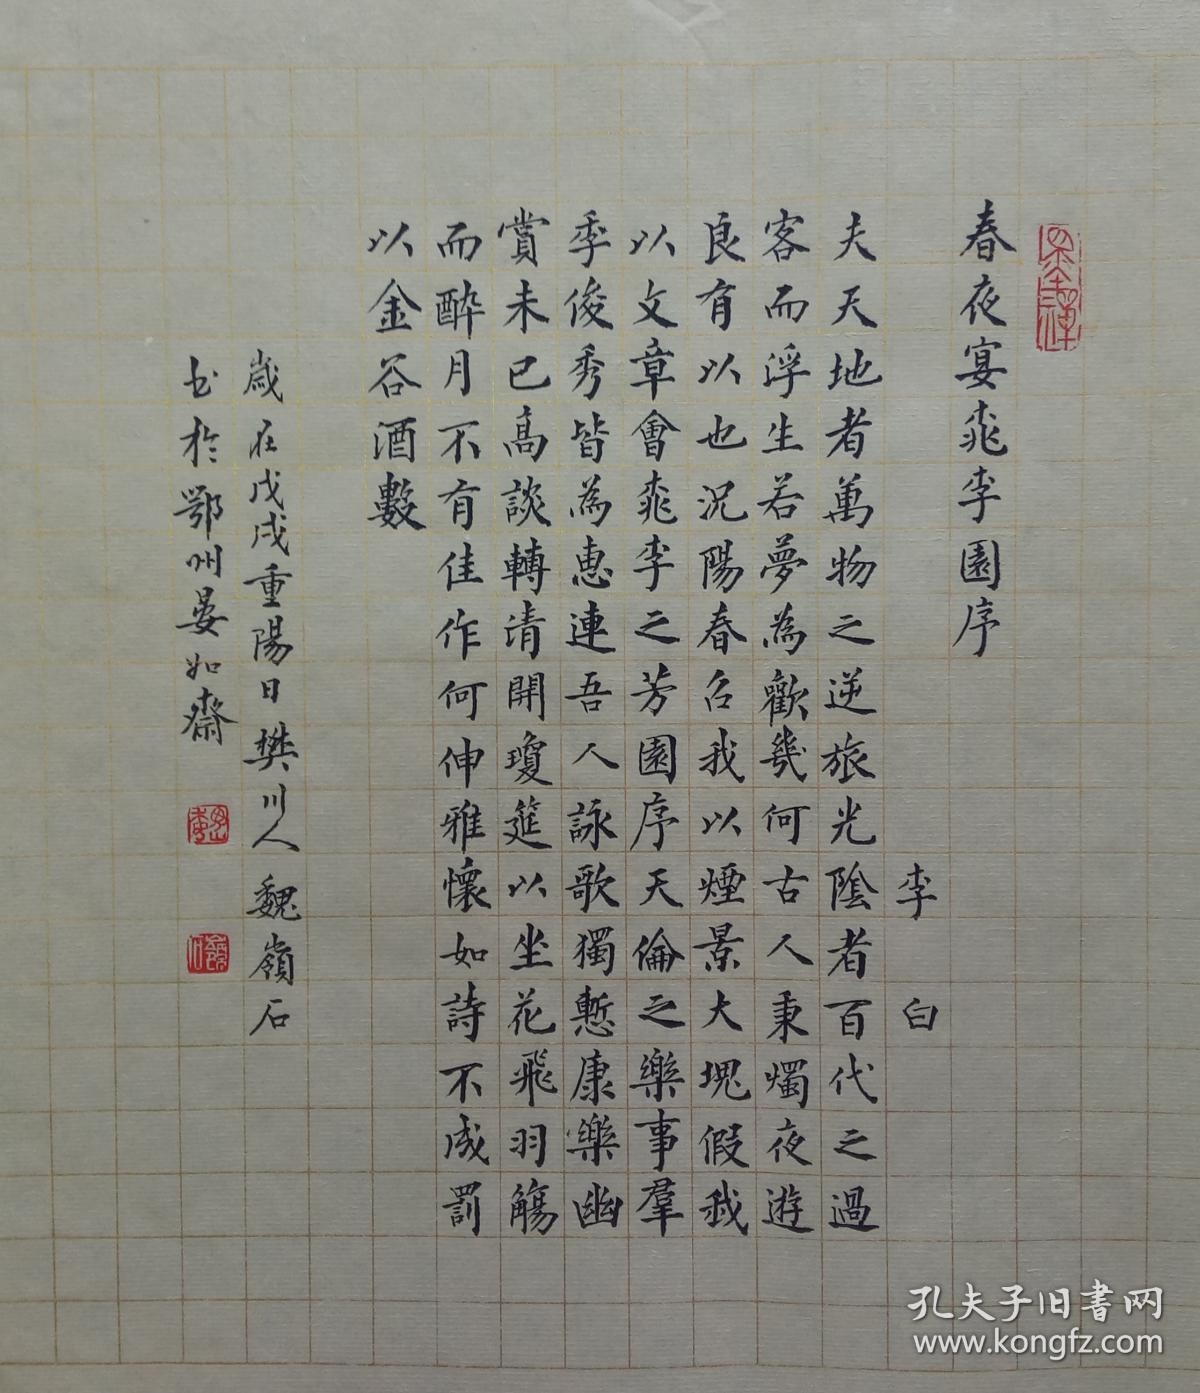 春夜宴桃李園序
李白
夫天地者萬物之逆旅光陰者百代之過
客而浮生若夢為歡幾何古人秉燭夜遊
良有以也況陽春召我以煙景大塊假我
以文章會桃李之芳園序天倫之樂事羣
季俊秀皆為惠連吾人詠歌獨慙康樂幽
賞未已高談轉清開瓊筵以坐花飛羽觴
而醉月不有佳作何伸雅懷如詩不成罰
以金谷酒數
歲在戊戌重陽日樊川人魏嶺石
書於鄂州晏如齋
魏
嶺石
孔夫子旧书网
www.kongfz.com